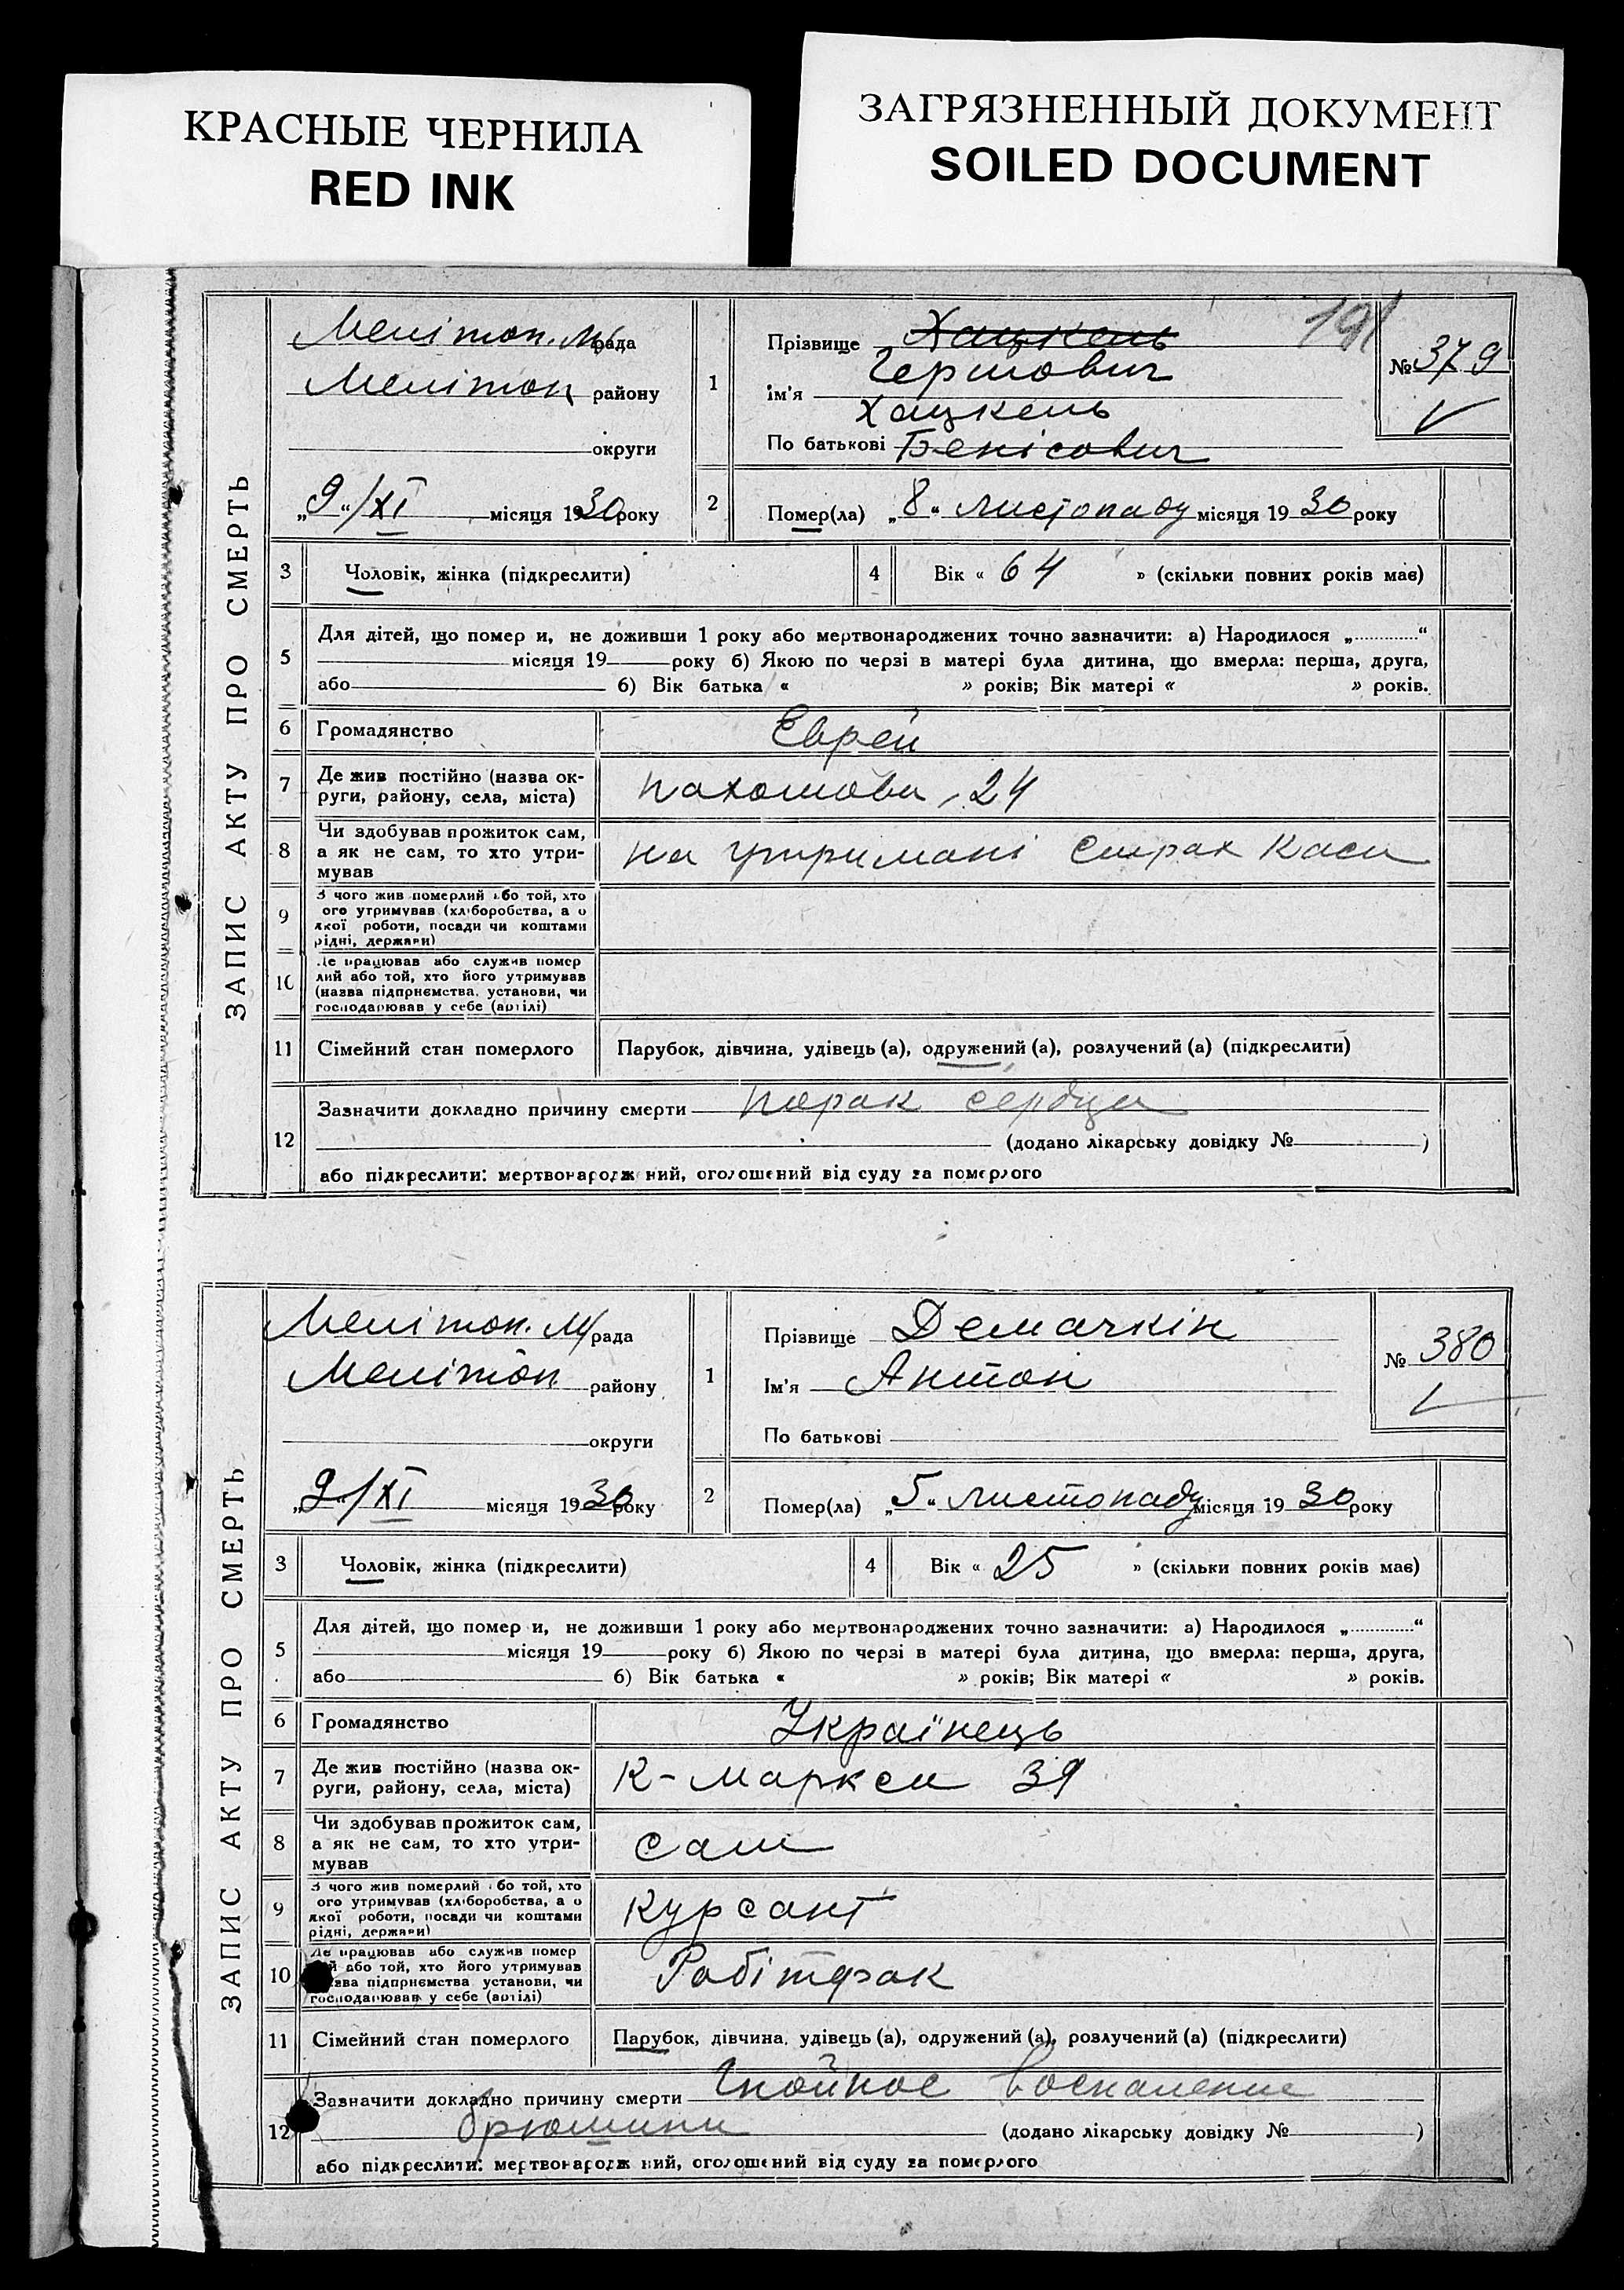 КРАСНЫЕ ЧЕРНИЛА
RED INK
ЗАГРЯЗНЕННЫЙ ДОКУМЕНТ
SOILED DOCUMENT
191
ЗАПИС АКТУ ПРО СМЕРТЬ
Мелітоп. М/рада
Мелітоп району
округи
„9“/XI місяця 1930 року
1
Прізвище Хацкель
Гершович
ім'я
Хацкель
По батькові Бенісович
№ 379
2
Помер(ла) „8“ листопаду місяця 1930 року
3 Чоловік, жінка (підкреслити)
4 Вік « 64 » (скільки повних років має)
5
Для дітей, що помер и, не доживши 1 року або мертвонароджених точно зазначити: а) Народилося „............“
місяця 19 року б) Якою по черзі в матері була дитина, що вмерла: перша, друга,
або б) Вік батька « » років; Вік матері « » років.
6 Громадянство Єврей
7 Де жив постійно (назва ок-
руги, району, села, міста)
24
8 Чи здобував прожиток сам,
а як не сам, то хто утри-
мував
на утримані Страх Каси
9 З чого жив померлий або той, хто
ого утримував (хліборобства, а о
якої роботи, посади чи коштами
рідні, держави)
10 Де працював або служив помер
лий або той, хто його утримував
(назва підприємства, установи, чи
господарював у себе (артілі)
11 Сімейний стан померлого Парубок, дівчина, удівець (а), одружений (а), розлучений (а) (підкреслити)
12
Зазначити докладно причину смерти порок сердца
(додано лікарську довідку № )
або підкреслити: мертвонародж ний, оголошений від суду за померлого
ЗАПИС АКТУ ПРО СМЕРТЬ
Мелітоп. М/рада
Мелітоп району
округи
„9“/XI місяця 1930 року
1
Прізвище Демачкін
Ім'я Антон
По батькові
№ 380
2
Помер(ла) „5“ листопаду місяця 1930 року
3 Чоловік, жінка (підкреслити)
4 Вік « 25 » (скільки повних років має)
5
Для дітей, що помер и, не доживши 1 року або мертвонароджених точно зазначити: а) Народилося „............“
місяця 19 року б) Якою по черзі в матері була дитина, що вмерла: перша, друга,
або б) Вік батька « » років; Вік матері « » років.
6 Громадянство Українець
7 Де жив постійно (назва ок-
руги, району, села, міста)
К-Маркса 39
8 Чи здобував прожиток сам,
а як не сам, то хто утри-
мував
сам
9 З чого жив померлий або той, хто
ого утримував (хліборобства, а о
якої роботи, посади чи коштами
рідні, держави)
Курсант
10 Де працював або служив помер
ий або той, хто його утримував
зва підприємства установи, чи
господарював у себе (артілі)
Робітфак
11 Сімейний стан померлого Парубок, дівчина, удівець (а), одружений (а), розлучений (а) (підкреслити)
12
Зазначити докладно причину смерти Гнойное воспаление
брюшини (додано лікарську довідку № )
або підкреслити: мертвонародж ний, оголошений від суду за померлого